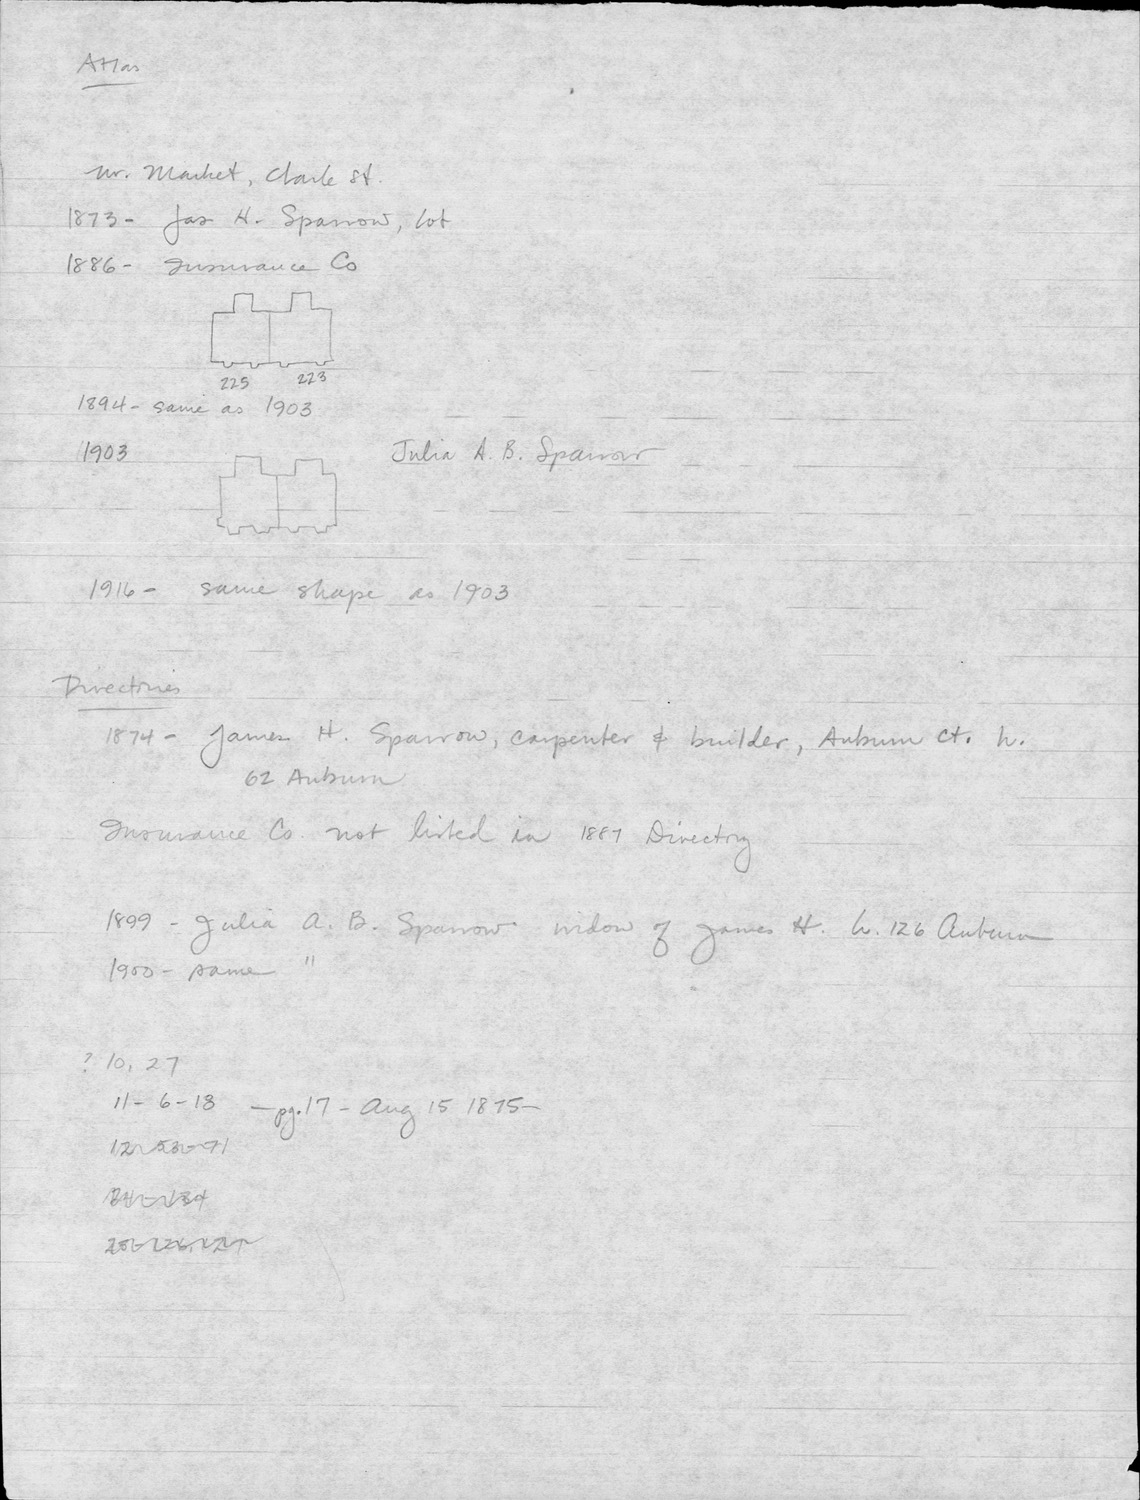 Atlas
nr. Market, Clark St.
1873- Jas H. Sparrow, lot
1886- Insurance Co
225 223
1894- same as 1903
1903 Julia A. B. Sparrow
1916- same shape as 1903
Directories
1874- James H. Sparrow, carpenter & builder, Auburn Ct. h.
62 Auburn
Insurance Co. not listed in 1887 Directory
1899 - Julia A. B. Sparrow widow of James H. h. 126 Auburn
1900- same "
? 10, 27
11- 6-13 - pg. 17 - Aug 15 1875-
12-53-71